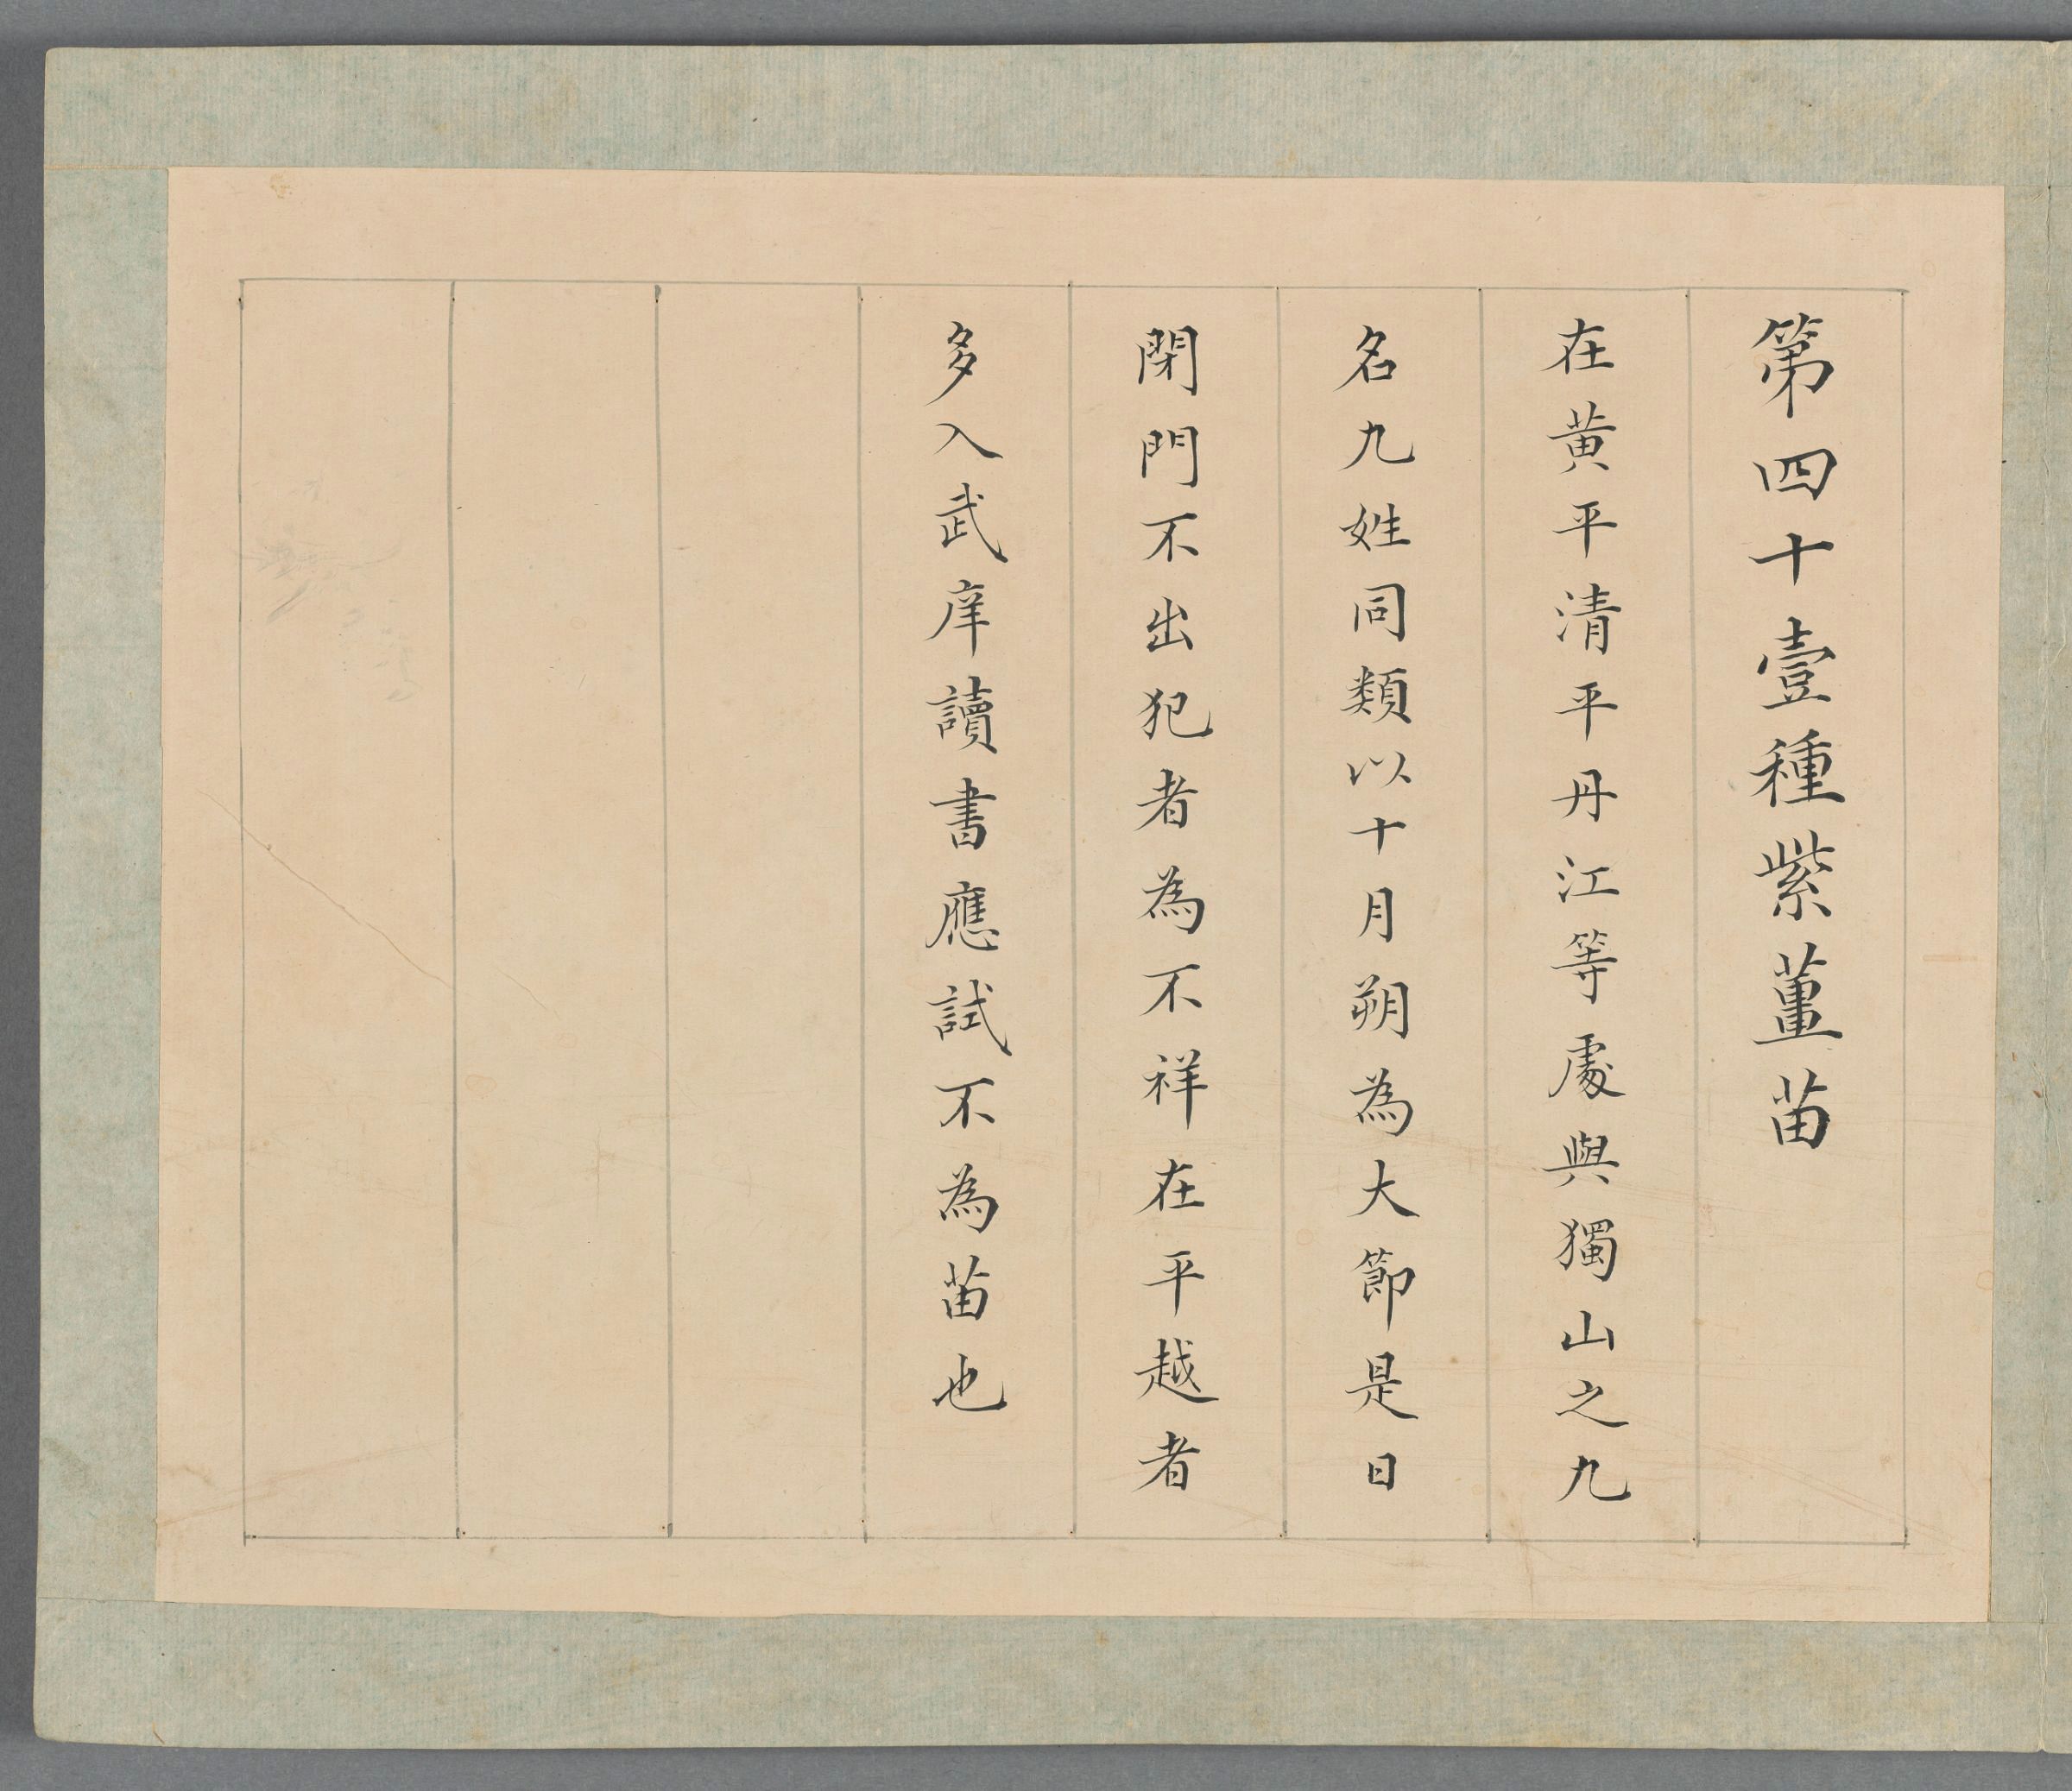 第四十壹種紫薑苗
在黄平清平丹江等處與獨山之九
名九姓同類以十月朔為大節是日
閉門不出犯者為不祥在平越者
多入武庠讀書應試不為苗也